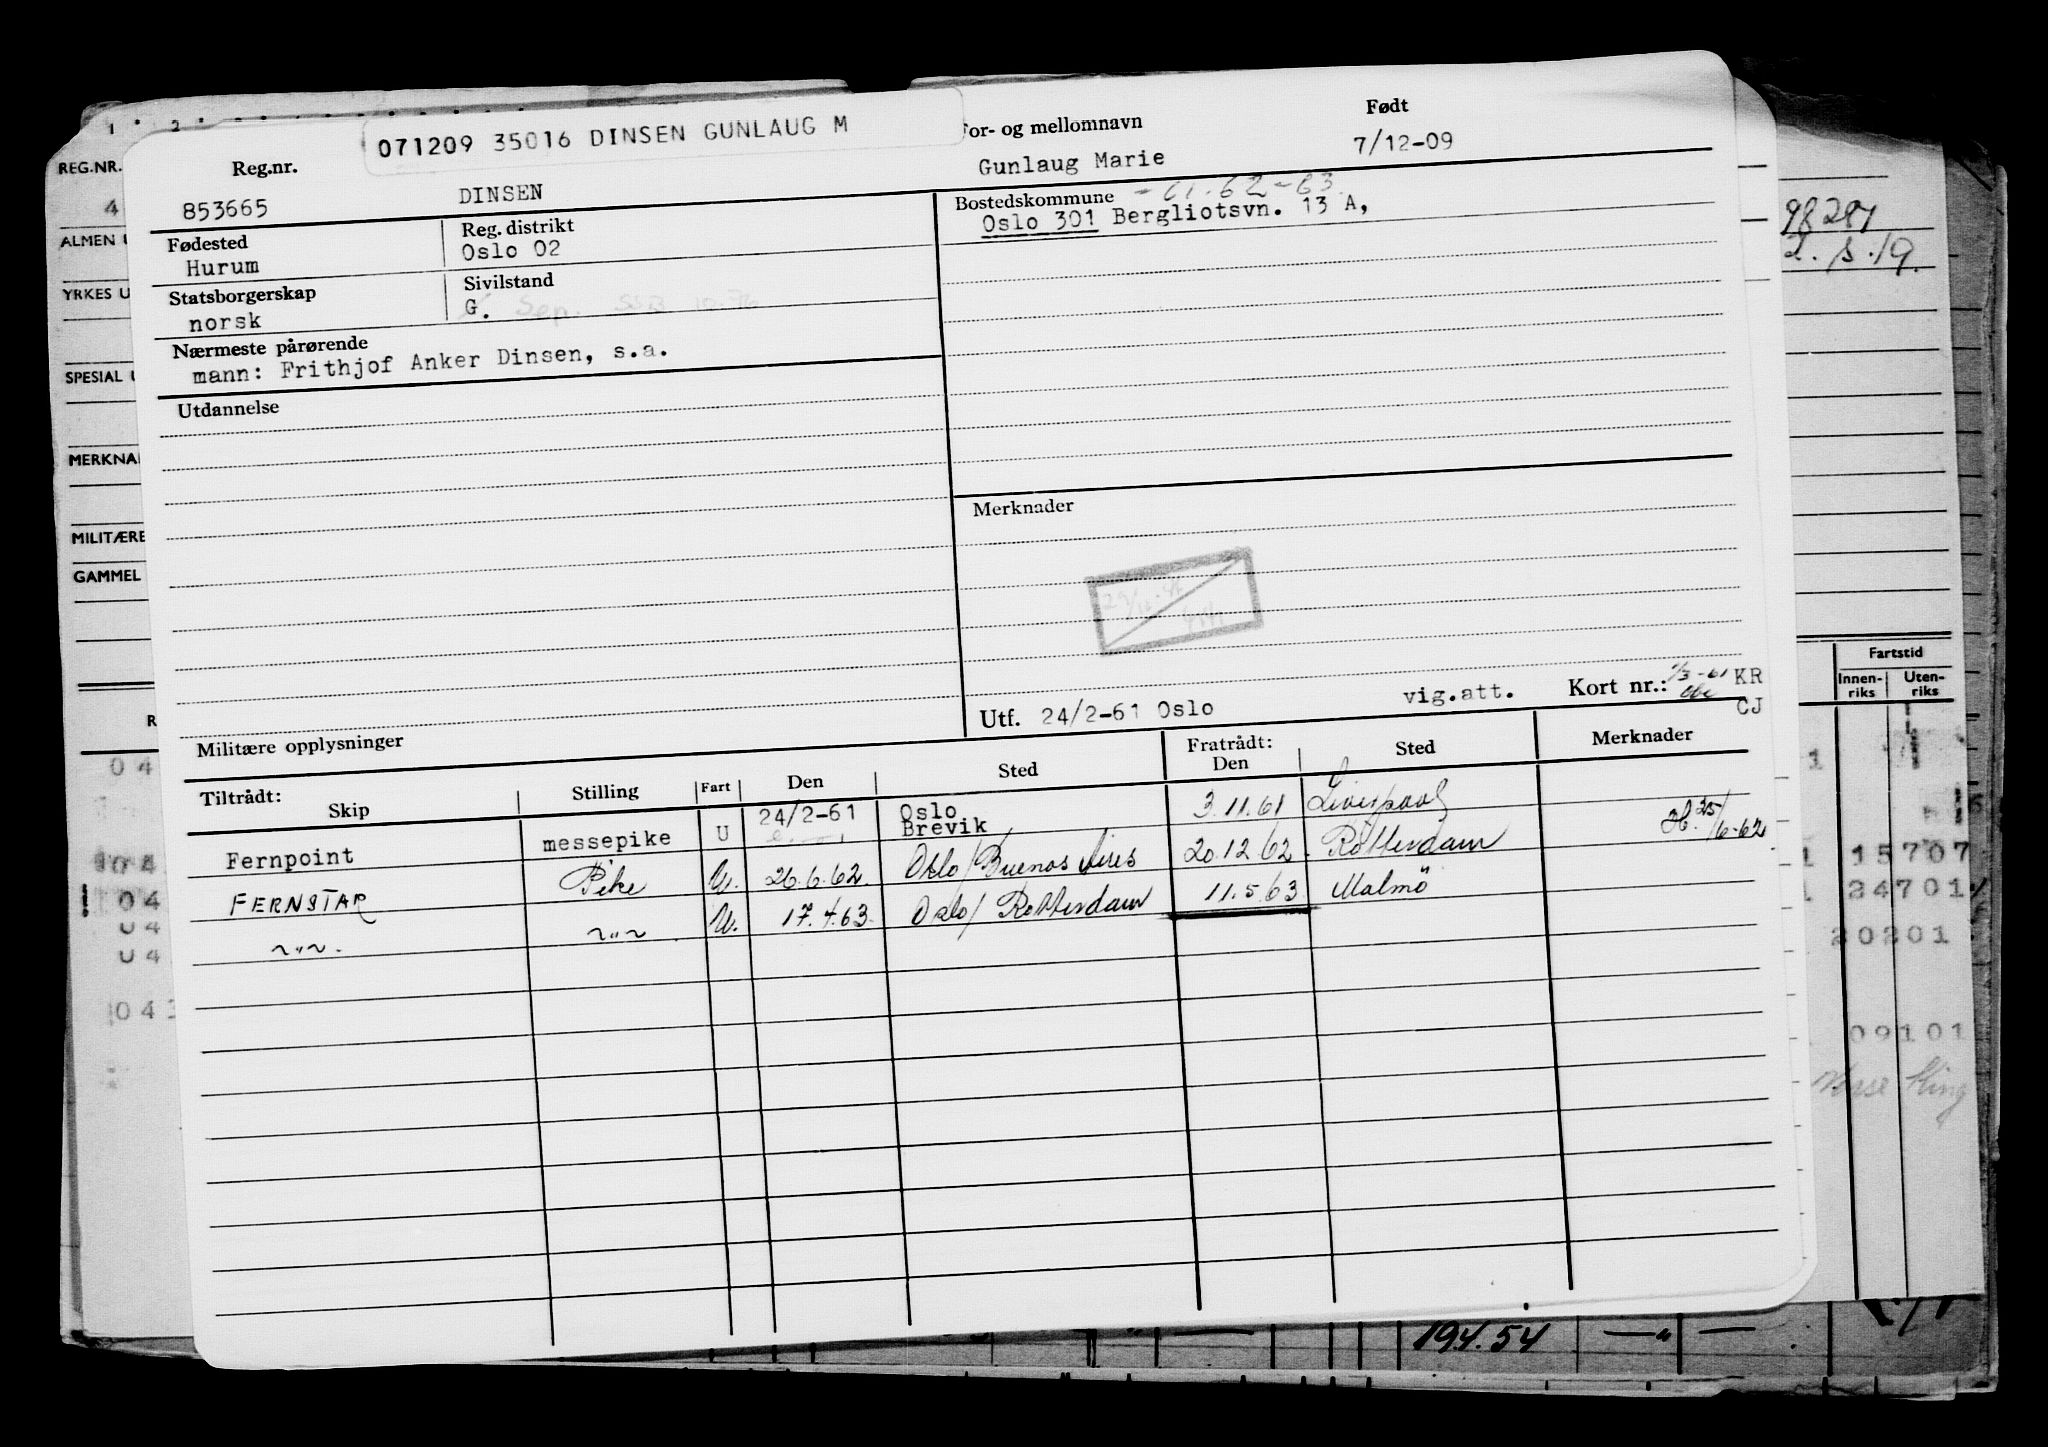 071209 35016 DINSEN GUNLAUG M
Reg.nr. For- og mellomnavn Født
853665 DINSEN Gunlaug Marie 7/12-09
Fødested Reg. distrikt Bostedskommune - 61-62-63
Hurum Oslo 02 Oslo 301 Bergliotsvn. 13 A,
Statsborgerskap Sivilstand
norsk G. Sep.
Nærmeste pårørende
mann: Frithjof Anker Dinsen, s.a.
Utdannelse
Merknader
Utf. 24/2-61 Oslo vig.att. Kort nr.: KR
CJ
Militære opplysninger
Tiltrådt: Fratrådt:
Skip Stilling Fart Den Sted Den Sted Merknader
Fernpoint messepike U 24/2-61 Oslo Brevik 3.11.61 Liverpool
FERNSTAR Pike U. 26.6.62. Oslo/Buenos Aires 20.12.62. Rotterdam 25/6-62
~"~. ~"~ U. 17.4.63. Oslo/Rotterdam 11.5.63 Malmö
1 2
REG.NR.
4
ALMEN U
YRKES U
SPESIAL U
MERKNA
MILITÆRE
GAMMEL
R
04
04
04
04
04
98284
Fartstid
Innen-riks Uten-riks
1
1 15707
1 24701
20201
09101
19.4.54 —"—